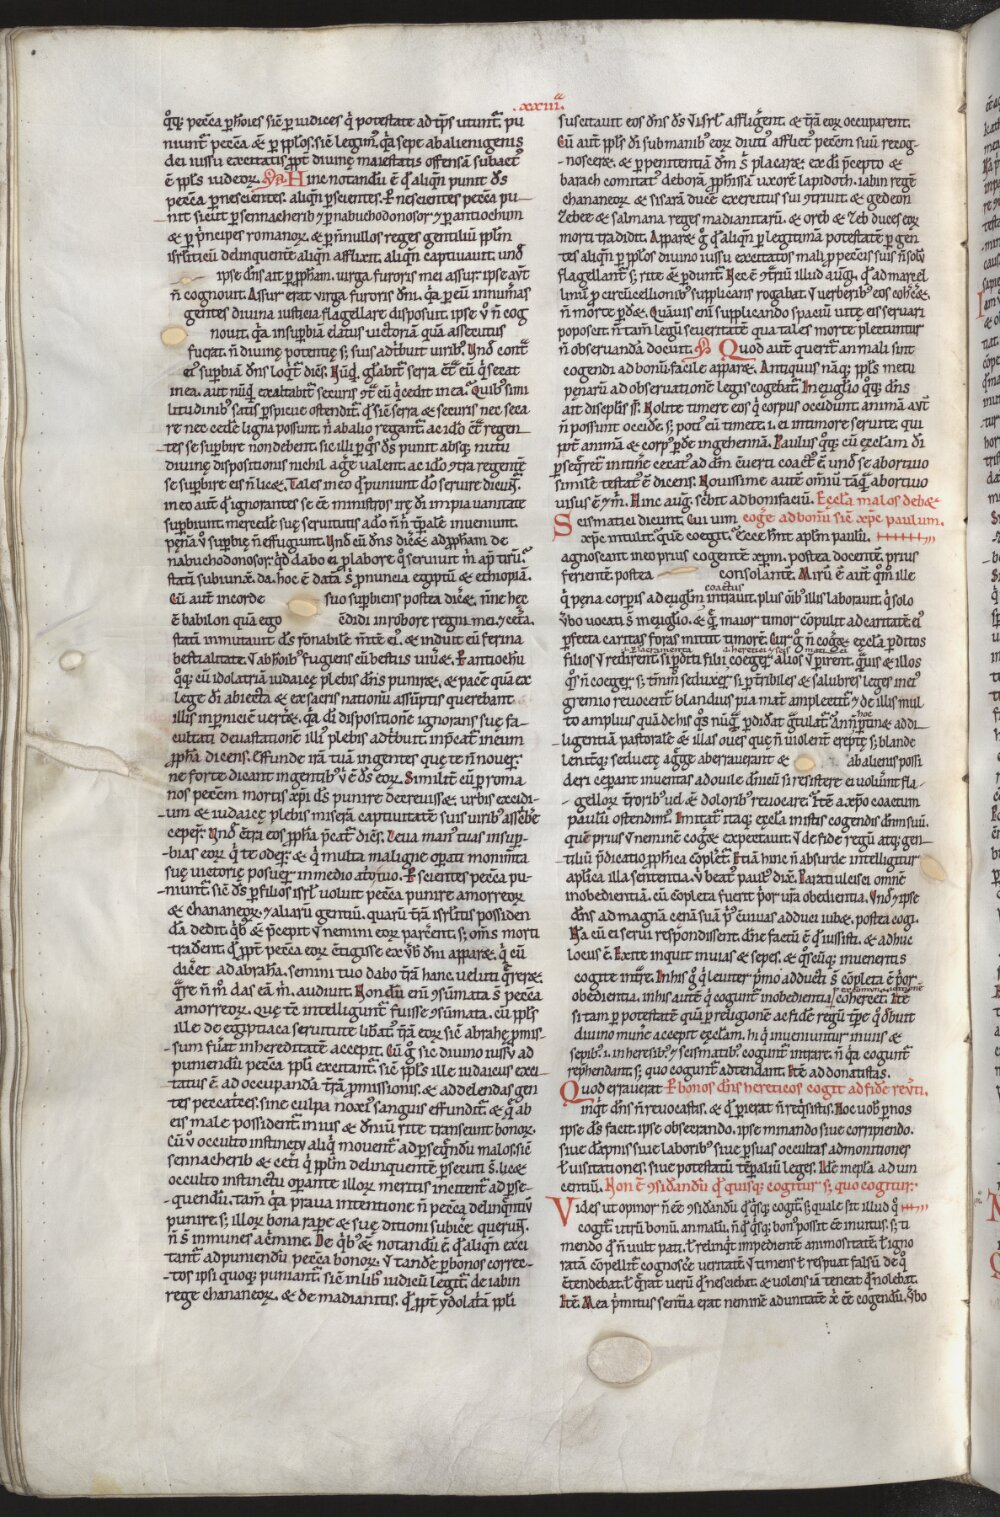 .xxiii.
q̃q; pecc̃a ꝑ hoĩes sic̃ ꝑ iudices q̃ potestate ad tp̃s utunt̃. pu
niunt̃ pecc̃a & ꝑ pplõs. sic̃ legim̃. q̃a sepe ab alienigenis
dei iussu excitatis ꝓpt̃ diuinę maiestatis offensã subact̃
ẽ ppl̃s iudeoꝝ. Hinc notandũ ẽ q̃ aliqñ punit d̃s
pecc̃a ꝑ nescientes. aliqñ ꝑ scientes. P̃ nescientes pecc̃a pu
nit sicut ꝑ sennacherib ⁊ ꝑ nabuchodonosor ⁊ ꝑ antiochum
& ꝑ p̃ncipes romanoꝝ. & ꝑ ñnullos reges gentiliũ pplm̃
isrl̃iticũ delinquentẽ aliqñ afflixit. aliqñ captiuauit. unð
ipse dñs ait ꝑ ꝓpham̃. uirga furoris mei assur ipse aut̃
ñ cognouit. Assur erat uirga furoris dñi. q̃a ꝑ eũ innum̃as
gentes diuina iusticia flagellare disposuit. ipse v̾ ñ cog
nouit. q̃a in supbiã elatus uictoriã quã assecutus
fuerat. ñ diuinę potentię s; suis adt̾buit uirib;. Unð cont̃
ei supbiã dñs loq̃t̃ diẽs. Nũq̃. gl̃abit̃ serra c̃t̃ eũ q̃ secat
in ea. aut nũq̃ exaltabit̃ securis ⁊t̃ eũ q̃ cedit in ea. Quib; simi
litudinib; satis ꝑspicue ostendit̃. q̃ sic̃ serra & securis nec seca
re nec cedẽ ligna possunt. ñ ab alio regant̃. ac idõ c̃t̃ regen
tes se supbire non debent. sic illi ꝑ q̃s d̃s punit absq; nutu
diuinę dispositionis nichil ag̃e ualent. ac idõ ⁊tra regentẽ
se supbire eis ñ licet. Tales in eo q̃ puniunt dõ seruire dicunt̃.
in eo aut̃ q̃ ignorantes se ẽe ministros irę di impia uanitate
supbiunt. mercedẽ suę seruitutis a dõ ñ ñ tp̃ale inueniunt.
penã v̾ supbię ñ effugiunt. Unð eũ dñs diceret ad ꝓpham de
nabuchodonosor. q̃d dabo ei ꝓ labore q̃ seruiuit m̃ ap̃ tirũ?
statũ subiunx̃. da. hoc ẽ data s̃ pnuncia egiptũ & ethiopiã.
Cũ aut̃ in corde suo supbiens postea diceret. ñne hęc
ẽ babilon quã ego c̃didi in robore regni mei. ⁊ cet̃a.
statũ inmutauit d̃s r̃onabilẽ mt̃ẽ ei. & induit eũ ferina
bestialitate. v̾ ab hoĩb; fugiens cũ bestiis uiũet. P̃ antiochũ
q̃q; cũ idolatriã iudaicę plebis dñs puniret. & pacẽ quã ex
lege dĩ abiecta & ex sacris nationũ assũptis querebant.
illis in pniciẽ uerteret. q̃a dĩ dispositionẽ ignorans suę fa
cultati deuastationẽ illi plebis adt̾buit. inp̃cat̃ in eum
ꝓpha dicens. Effunde irã tuã in gentes que te ñ nouer̃.
ne forte dicant in gentib; v̾ ẽ d̃s eoꝝ. Similit̃ cũ ꝑ roma
nos pecc̃m mortis xp̃i d̃s punire decreuisset. urbis excidi
um & iudaicę plebis miserã captiuitatẽ suis uirib; ass̃cbt̃e
ceper̃. Unð c̃t̃ra eos ꝓpha p̃cat̃ diẽs. Leua man̾ tuas in supb
bias eoꝝ q̃ te oder̃. & q̃ multa maligne opati monim̃ta
suę uictorię posuer̃ in medio at̾o tuo. P̃ scientes pecc̃a pu
niunt̃. sic̃ d̃s ꝑ filios isrl̃ uoluit pecc̃a punire amorreoꝝ
& chananeoꝝ. ⁊ aliarũ gentiũ. quarũ t̃rã isrl̃itis possiden
dã dedit. q̃b; & p̃cepit v̾ nemini eoꝝ parc̃ent. s; om̃s morti
tradent. q̃ ꝓpt̃ pecc̃a eoꝝ c̃tigisse ex v̾b̃ dñi apparet. q̃ cũ
dic̃et ad abrahã. semini tuo dabo t̃rã hanc. ueluti q̃reret.
q̃re ñ m̃ das eã m̃. audiuit. Nondũ eni ⁊sũmata s̃ pecc̃a
amorreoꝝ. que tẽ intelligunt̃ fuisse ⁊sũmata. cũ ppl̃s
ille de egiptiaca seruitute libat̃. t̃rã eoꝝ sic̃ abrahę p̃mis
sum fũat in hereditatẽ accepit. Cũ g̃ sic̃ diuino iussu ad
puniendũ pecc̃a ppl̃i excitant̃. sic̃ ppl̃s ille iudaicus exci
tatus ẽ ad occupandã t̃rã ꝓmissionis. & ad delendas gen
tes peccat̾ces. sine culpa noxi̾ sanguis effundit̃. & q̃ ab
eis male possident̃. in ius & dñiũ rite transeunt bonoꝝ.
Cũ v̾ occulto instinctu aliq̃ mouent̃ ad ꝑseq̃ndũ malos. sic̃
sennacherib & cet̃i q̃ pplm̃ delinquentẽ ꝑsecuti s̃. licet
occulto instinctu opante illoꝝ meritis incitent̃ ad ꝑse
quendũ. tam̃ q̃a praua intentione ñ pecc̃a delinq̃ntiũ
punire. s; illoꝝ bona rape & suę ditioni subicẽ querunt̃.
ñ s̃ inmunes a c̃imine. De q̃b; & notandũ ẽ q̃ aliqñ exci
tant̃ ad puniendũ pecc̃a bonoꝝ. v̾ tande ꝑ bonos correc
tos ipsi quoq; puniant̃. sic̃ in lib; iudicũ legit̃ de iabin
rege chananeoꝝ. & de madianitis. q̃ ꝓpt̃ ydolat̃ã ppl̃i
suscitauit eos dñs d̃s v̾ isrl̃ affligerent. & t̃rã eoꝝ occuparent.
Cũ aut̃ ppl̃s dĩ sub manib; eoꝝ diuti̾ afflict̾ pecc̃m suũ recog
nosceret. & ꝑ penitentiã dñm s̃ placaret. ex dĩ p̃cepto &
barach comitat̾ deborã ꝓphissã uxorẽ lapidoth. iabin regẽ
chananeoꝝ & sisarã ducẽ exercitus sui ⁊triuit. & gedeon
zebee & salmana reges madianitarũ. & oreb & zeb duces eoꝝ
morti tradidit. Apparet g̃ q̃ aliqñ ꝑ legitimã potestatẽ ꝑ gen
tes aliqñ ꝑ pplõs diuino iussu excitatos mali ꝓ peccis suis ñ solũ
flagellant̃ s; rite & pdunt̃. Nec ẽ ⁊t̾riũ illud aug̃. q̃ ad marcel
linũ ꝓ circũcellionib; supplicans rogabat v̾ uerberib; eos coh̃cet.
ñ morte pdet. Quãuis eni supplicando spaciũ uitę eis seruari
poposcit. ñ tam̃ legũ seueritatẽ qua tales morte plectuntur
ñ obseruandã docuit. Quod aut̃ querit̃ an mali sint
cogendi ad bonũ. facile apparet. Antiquus nãq; ppl̃s metu
penarũ ad obseruationẽ legis cogebat̃. In euglio q̃q; dñs
ait discipl̃is s̃. Nolite timere eos q̃ corpus occidunt. animã aut̃
ñ possunt occidẽ. s; poti̾ eũ timete. i. ei in timore seruite. qui
pot̃ animã & corp̾ pdẽ in gehennã. Paulus q̃q; cũ ęcclam dĩ
ꝑseq̃ret̃. in itinẽ cecat̾ ad dñm c̃uerti coact̾ ẽ. unð se abortiuo
similẽ testat̃ ẽ dicens. Nouissime autẽ om̃iũ tãq̃ abortiuo
uisus ẽ ⁊ m̃. Hinc aug̃. sc̾bit ad bonifaciũ. Ęccl̃a malos debet
cog̃e ad bonũ sic̃ xp̃c paulum.
Scismatici dicunt. Cui uim
xp̃c intulit. que coegit. Ecce hñt aplm̃ paulũ.
agnoscant in eo prius cogentẽ xp̃m. postea docentẽ. prius
ferientẽ. postea consolantẽ. Mirũ ẽ aut̃ q̃m ille
coactus
q̃ pena corpis ad euglm̃ intrauit. plus õib; illis laborauit. q̃ solo
v̾bo uocati s̃ in euglio. & q̃ maior timor cõpulit ad caritatẽ ei̾
ꝑfecta caritas foras mittit timorẽ. Cur g̃ ñ coget ęccl̃a pditos
filios v̾ redirent. si pditi filii coeger̃ alios v̾ pirent. q̃uis & illos
q̃s ñ coeger̃ s; tm̃m̃ seduxer̃. si ꝑ t̾ribiles & salubres leges in ei̾
gremio reuocent̃ blandius pia mat̃ amplectit̃. ⁊ de illis mul
to amplius quã de his q̃s nũq̃ pdidat g̃tulat̃. An ñ ptinet ad di
ligentiã pastoralẽ & illas oues que ñ uiolent̃ ereptę s; blande
leniteq; seductę a g̃ge aberrauerant & ab alienis possi
deri ceperant inuentas ad ouile dñicũ si resistere ei uoluint̃ fla
gelloꝝ t̾rorib; uel & dolorib; reuocare. Itẽ. a xp̃o coactum
paulũ ostendim̾. Imitat̃ itaq; ęccl̃a in istis cogendis dñm suũ.
quẽ prius v̾ neminẽ coget expectauit. v̾ de fide regũ atq; gen
tiliũ p̃dicatio ꝓphica cõplet̃. Etiã hinc ñ absurde intelligitur
aplica illa sententia. v̾ beat̾ paul̾ dix̃. Parati ulcisci omnẽ
inobedientiã. cũ cõpleta fuerit p̃or ur̃a obedientia. Unð ⁊ ipse
dñs ad magnã cenã suã p̃ c̃uiuas adduci iubet. postea cogi.
Nã cũ ei serui respondissent. dñe factũ ẽ q̃ iussisti. & adhuc
locus ẽ. Exite inquit in uias & sepes. & q̃scũq; inueneritis
cogite int̾re. In his g̃ q̃ leniter p̃mo adducti s̃ cõpleta ẽ p̃or
obedientia. in his autẽ q̃ cogunt̃ inobedientia coh̃cet̃. Itẽ
si tam̃ ꝑ potestatẽ quã ꝑ religionẽ ac fidẽ regũ tp̃e q̃ d̃buit
diuino munẽ accepit ęccl̃am. hi q̃ inueniuntur in uiis &
sepib;. i. in heresib; ⁊ scismatib; cogunt̃ intrare. ñ q̃a cogunt̃
rep̃hendant̃. s; quo cogunt̃ adtendant. Itẽ ad donatistas.
Quod errauerat P̃ bonos dñs hereticos cogit ad fidẽ reu̾ti.
inq̃t dñs ñ reuocastis. & q̃ pierat ñ req̃sistis. Hoc uob̃ ꝑ nos
ipse d̃s facit. ipse obsecrando. ipse minando siue corripiendo.
siue dãpnis siue laborib; siue ꝑ suas occultas admonitiones
ł uisitationes. siue potestatũ tẽpaliũ leges. Idẽ in epl̃a ad uin
centiũ. Non ẽ ⁊siđandũ q̃ quisq; cogitur s; quo cogitur.
Vides ut opinor ñ ẽe ⁊siđandũ q̃ q̃sq; cogit̃. s; quale sit illud q̃
cogit̃. utrũ bonũ. an malũ. ñ q̃ q̃sq; bon̾ possit ẽe inuitus. s; ti
mendo q̃ ñ uult pati. ł relinq̃t impedientẽ animositatẽ. ł igno
ratã cõpellit̃ cognoscẽe ueritatẽ. v̾ timens ł respuat falsũ de q̃
c̃tendebat. ł q̃rat uerũ q̃ nesciebat. & uolens iã teneat q̃ nolebat.
Itẽ. Mea p̃mitus sent̃ia erat neminẽ ad unitatẽ x̃ ẽe cogendũ. v̾bo